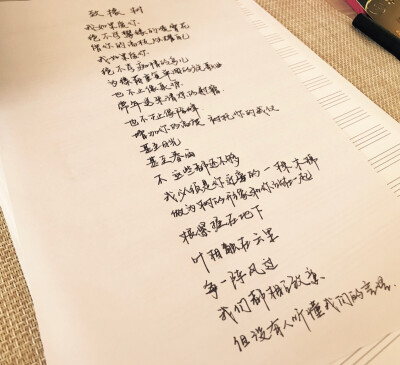 致橡树
我如果爱你
绝不学攀缘的凌霄花
借你的高枝炫耀自己
我如果爱你
绝不学痴情的鸟儿
为绿荫重复单调的歌曲
也不止像泉源
常年送来清凉的慰藉
也不止像险峰
增加你的高度 衬托你的威仪
甚至日光
甚至春雨
不 这些都还不够
我必须是你近旁的一株木棉
做为树的形象和你站在一起
根紧握在地下
叶相触在云里
每一阵风过
我们都相互致意
但没有人听懂我们的言语